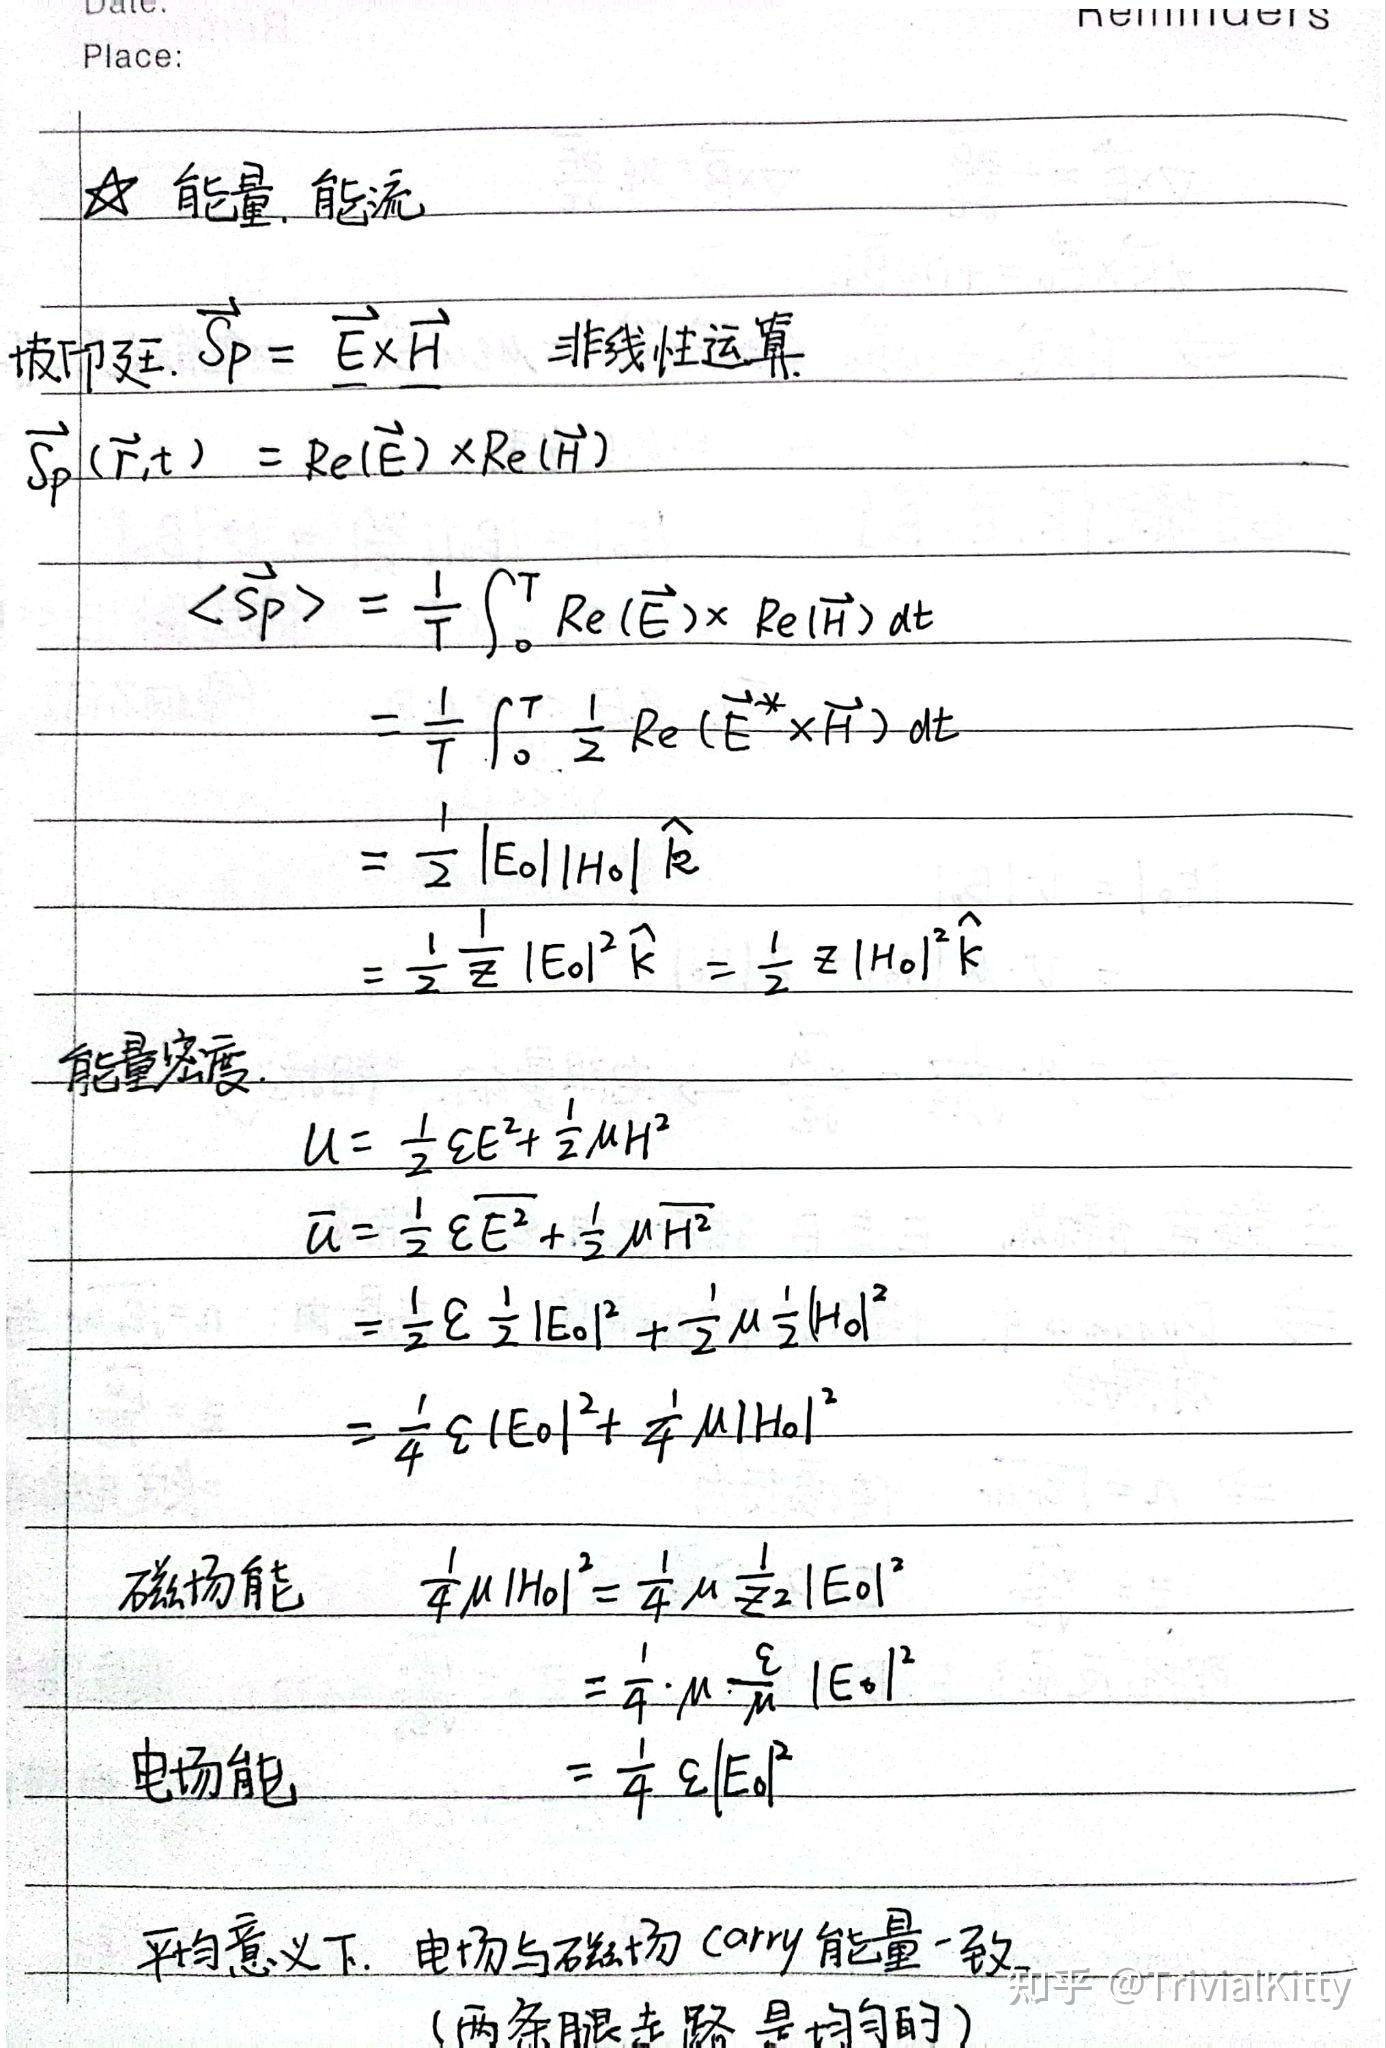 Date:
Reminders
Place:
☆ 能量. 能流
坡印廷. $\vec{S}_p = \vec{E} \times \vec{H}$ 非线性运算.
$\vec{S}_p(\vec{r}, t) = Re(\vec{E}) \times Re(\vec{H})$
$<\vec{S}_p> = \frac{1}{T} \int_0^T Re(\vec{E}) \times Re(\vec{H}) dt$
$= \frac{1}{T} \int_0^T \frac{1}{2} Re(\vec{E}^* \times \vec{H}) dt$
$= \frac{1}{2} |E_0||H_0| \hat{k}$
$= \frac{1}{2} \frac{1}{Z} |E_0|^2 \hat{k} = \frac{1}{2} Z |H_0|^2 \hat{k}$
能量密度.
$u = \frac{1}{2} \varepsilon E^2 + \frac{1}{2} \mu H^2$
$\overline{u} = \frac{1}{2} \varepsilon \overline{E^2} + \frac{1}{2} \mu \overline{H^2}$
$= \frac{1}{2} \varepsilon \frac{1}{2} |E_0|^2 + \frac{1}{2} \mu \frac{1}{2} |H_0|^2$
$= \frac{1}{4} \varepsilon |E_0|^2 + \frac{1}{4} \mu |H_0|^2$
磁场能 $\frac{1}{4} \mu |H_0|^2 = \frac{1}{4} \mu \frac{1}{Z^2} |E_0|^2$
$= \frac{1}{4} \cdot \mu \cdot \frac{\varepsilon}{\mu} |E_0|^2$
电场能 $= \frac{1}{4} \varepsilon |E_0|^2$
平均意义下. 电场与磁场 carry 能量一致.
知乎 @TrivialKitty
(两条腿走路是均匀的)